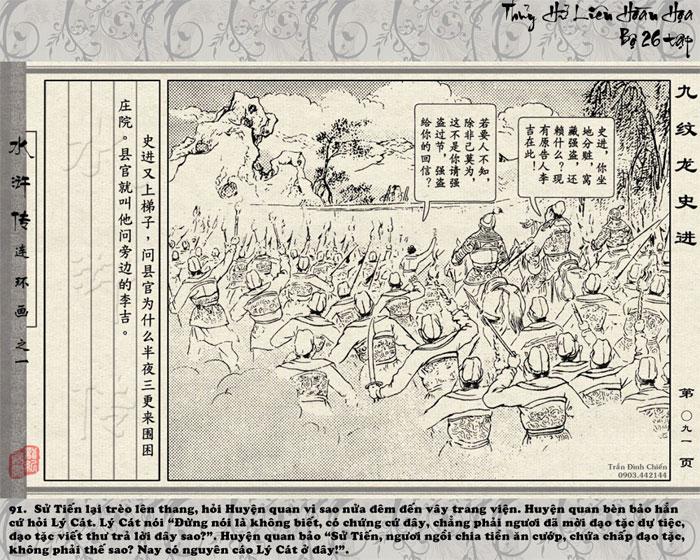 Thủy Hử Liên Hoàn Họa
Bộ 26 tập
九纹龙史进
第〇九一页
史进，你坐
地分赃，窝
藏强盗，还
赖什么？现
有原告人李
吉在此！
若要人不知，
除非己莫为，
这不是你请强
盗过节，强盗
给你的回信？
史进又上梯子，问县官为什么半夜三更来围困
庄院。县官就叫他问旁边的李吉。
水浒传
连环画之一
水浒传
Trần Đình Chiến
0903.442144
91. Sử Tiến lại trèo lên thang, hỏi Huyện quan vì sao nửa đêm đến vây trang viện. Huyện quan bèn bảo hắn
cứ hỏi Lý Cát. Lý Cát nói “Đừng nói là không biết, có chứng cứ đây, chẳng phải ngươi đã mời đạo tặc dự tiệc,
đạo tặc viết thư trả lời đây sao?”. Huyện quan bảo “Sử Tiến, ngươi ngồi chia tiền ăn cướp, chứa chấp đạo tặc,
không phải thế sao? Nay có nguyên cáo Lý Cát ở đây!”.